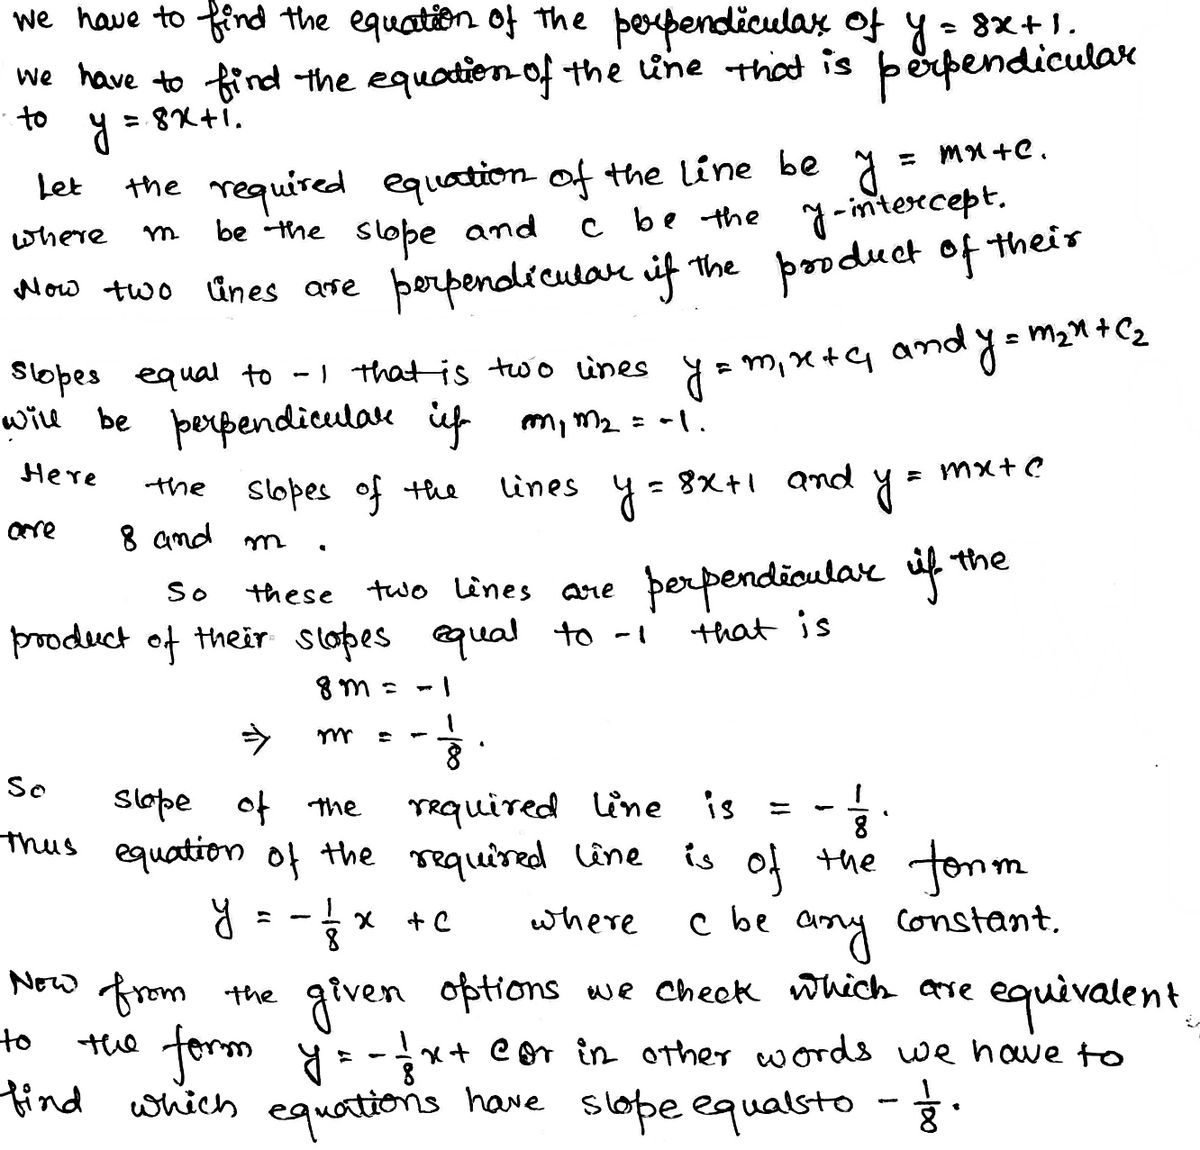 we have to find the equation of the perpendicular of y = 8x+1.
we have to find the equation of the line that is perpendicular
to y = 8x+1.
Let the required equation of the line be y = mx+c.
where m be the slope and c be the y-intercept.
Now two lines are perpendicular if the product of their
slopes equal to -1 that is two lines y = m₁x+c₁ and y = m₂x+c₂
will be perpendicular if m₁m₂ = -1.
Here the slopes of the lines y = 8x+1 and y = mx+c
are 8 and m.
So these two lines are perpendicular if the
product of their slopes equal to -1 that is
8m = -1
⇒ m = -1/8.
So slope of the required line is = -1/8.
Thus equation of the required line is of the form
y = -1/8 x + c where c be any constant.
Now from the given options we check which are equivalent
to the form y = -1/8 x + c or in other words we have to
find which equations have slope equals to -1/8.